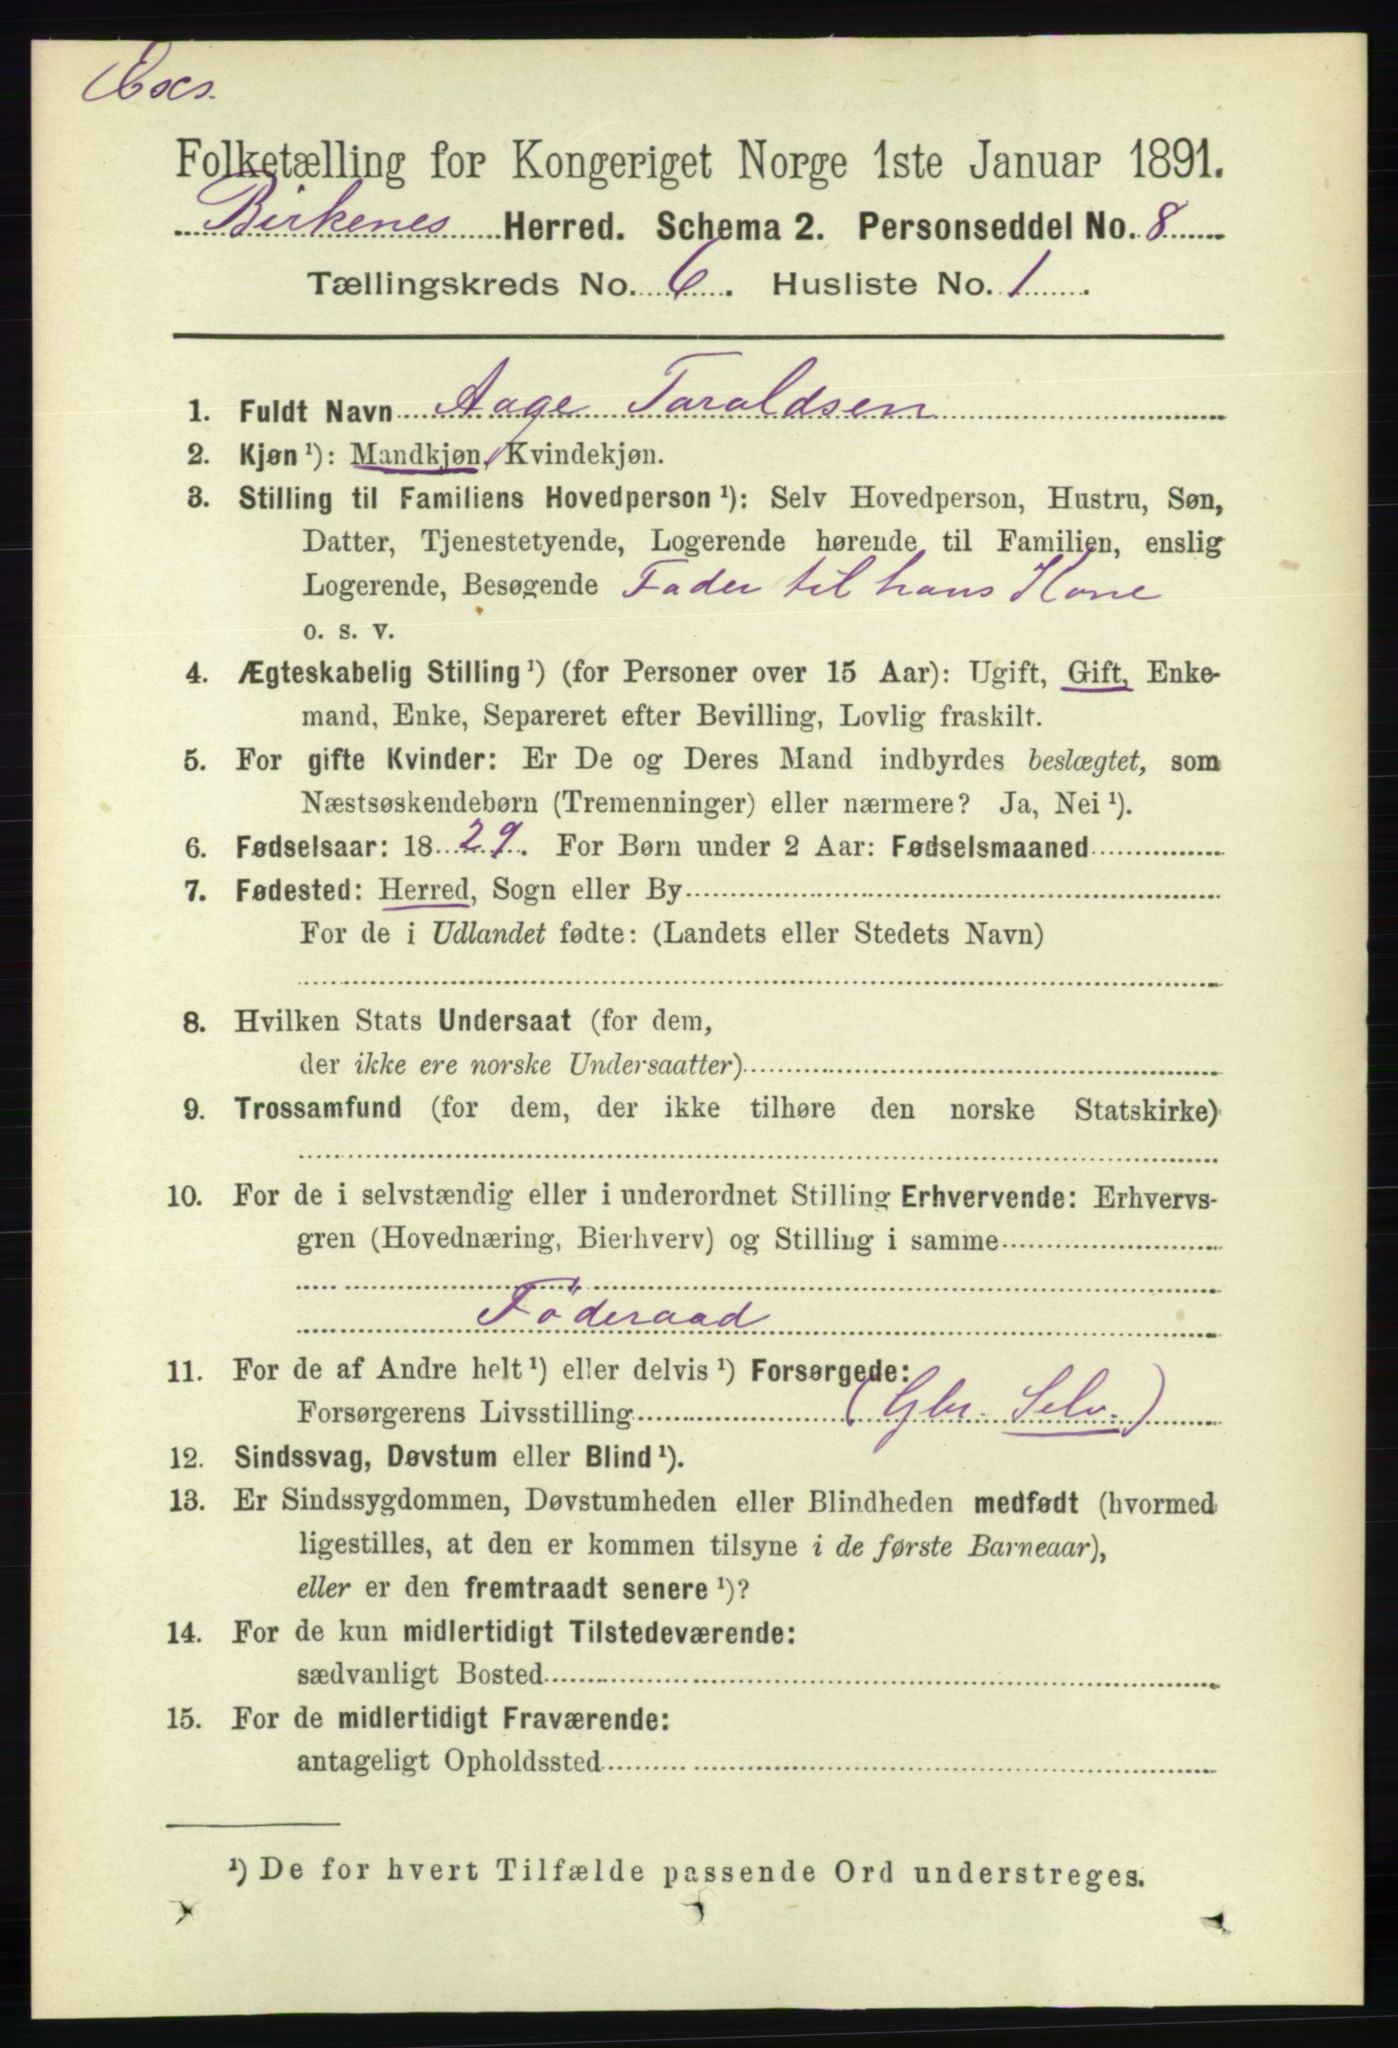 Excs.
Folketælling for Kongeriget Norge 1ste Januar 1891.
Birkenes Herred. Schema 2. Personseddel No. 8
Tællingskreds No. 6. Husliste No. 1.
1. Fuldt Navn Aage Taraldsen
2. Kjøn ¹): Mandkjøn, Kvindekjøn.
3. Stilling til Familiens Hovedperson ¹): Selv Hovedperson, Hustru, Søn,
Datter, Tjenestetyende, Logerende hørende til Familien, enslig
Logerende, Besøgende Fader til hans Kone
o. s. v.
4. Ægteskabelig Stilling ¹) (for Personer over 15 Aar): Ugift, Gift, Enke-
mand, Enke, Separeret efter Bevilling, Lovlig fraskilt.
5. For gifte Kvinder: Er De og Deres Mand indbyrdes beslægtet, som
Næstsøskendebørn (Tremenninger) eller nærmere? Ja, Nei ¹).
6. Fødselsaar: 1829. For Børn under 2 Aar: Fødselsmaaned
7. Fødested: Herred, Sogn eller By
For de i Udlandet fødte: (Landets eller Stedets Navn)
8. Hvilken Stats Undersaat (for dem,
der ikke ere norske Undersaatter)
9. Trossamfund (for dem, der ikke tilhøre den norske Statskirke)
10. For de i selvstændig eller i underordnet Stilling Erhvervende: Erhvervs-
gren (Hovednæring, Bierhverv) og Stilling i samme
Föderaad
11. For de af Andre helt ¹) eller delvis ¹) Forsørgede:
Forsørgerens Livsstilling (Gbr. Selv.)
12. Sindssvag, Døvstum eller Blind ¹).
13. Er Sindssygdommen, Døvstumheden eller Blindheden medfødt (hvormed
ligestilles, at den er kommen tilsyne i de første Barneaar),
eller er den fremtraadt senere ¹)?
14. For de kun midlertidigt Tilstedeværende:
sædvanligt Bosted
15. For de midlertidigt Fraværende:
antageligt Opholdssted
¹) De for hvert Tilfælde passende Ord understreges.